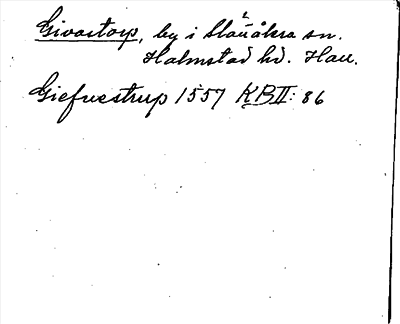 Givastorp, by i Slättåkra sn.
Halmstad hd. Hall.
Giefvestrup 1557 KB II: 86